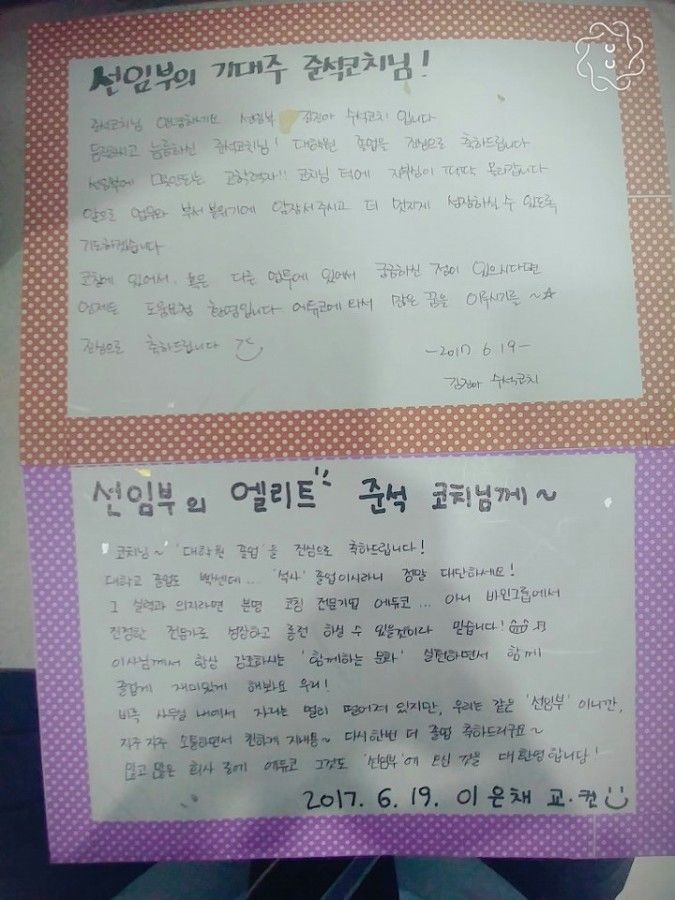 선임부의 기대주 준석코치님!
준석코치님 안녕하세요 선임부 김진아 수석코치 입니다
듬직하고 늠름하신 준석코치님! 대학원 졸업을 진심으로 축하드립니다
선임부에 몇안되는 고학력자!! 코치님 덕에 지위상이 떡딱 올라갑니다
앞으로 업무와 부서 분위기에 앞장서주시고 더 멋지게 성장하실 수 있도록
기도하겠습니다
코칭에 있어서, 혹은 다른 업무에 있어서 궁금하신 점이 있으시다면
언제든 도움요청 환영입니다 에듀코에 타서 많은 꿈을 이루시기를 ~☆
진심으로 축하드립니다
-2017 6.19-
김진아 수석코치
선임부의 엘리트 준석 코치님께~
코치님~ '대학원 졸업'을 진심으로 축하드립니다!
대학교 졸업도 빡센데... '석사' 졸업이시라니 정말 대단하세요!
그 실력과 의지라면 분명 코칭 전문기업 에듀코... 아니 바인그룹에서
진정한 전문가로 성장하고 롱런 하실 수 있을것이라 믿습니다!
이사님께서 항상 강조하시는 '함께하는 문화' 실천하면서 함께
즐겁게 재미있게 해봐요 우리!
비록 사무실 내에서 자리는 멀리 떨어져 있지만, 우리는 같은 '선임부' 이니깐,
자주자주 소통하면서 친하게 지내용~ 다시한번 더 졸업 축하드리구요~
많고 많은 회사 중에 에듀코 그것도 '선임부'에 오신 것을 대환영합니다!
2017. 6. 19. 이은채 교.컨